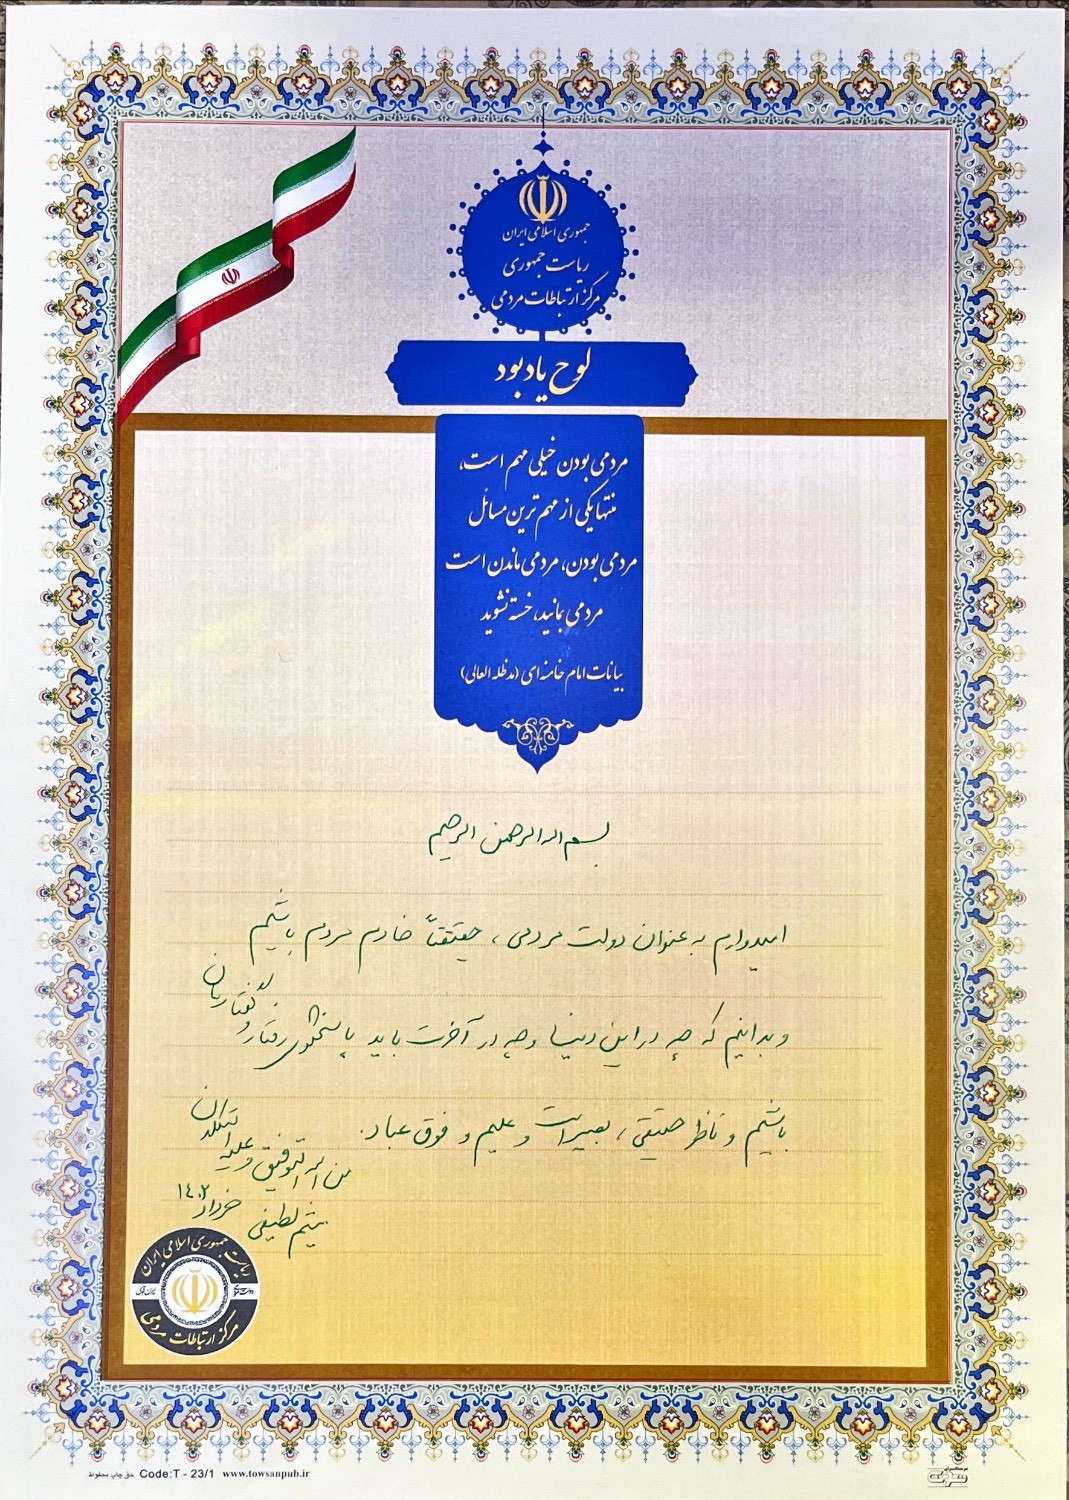 جمهوری اسلامی ایران
ریاست جمهوری
مرکز ارتباطات مردمی
لوح یادبود
مردمی بودن خیلی مهم است،
منتها یکی از مهم ترین مسائل
مردمی بودن، مردمی ماندن است
مردمی بمانید، خسته نشوید
بیانات امام خامنه ای (مدظله العالی)
بسم الله الرحمن الرحیم
امیدوارم به عنوان دولت مردمی، حقیقتاً خادم مردم باشیم
و بدانیم که چه در این دنیا و چه در آخرت باید پاسخگوی رفتار و گفتارمان
باشیم و ناظر حقیقی، بصیر است و علیم و فوق عباد.
من الله التوفیق و علیه التکلان
میثم لطیفی
خرداد ۱۴۰۲
ریاست جمهوری اسلامی ایران
مرکز ارتباطات مردمی
حق چاپ محفوظ Code:T - 23/1 www.towsanpub.ir